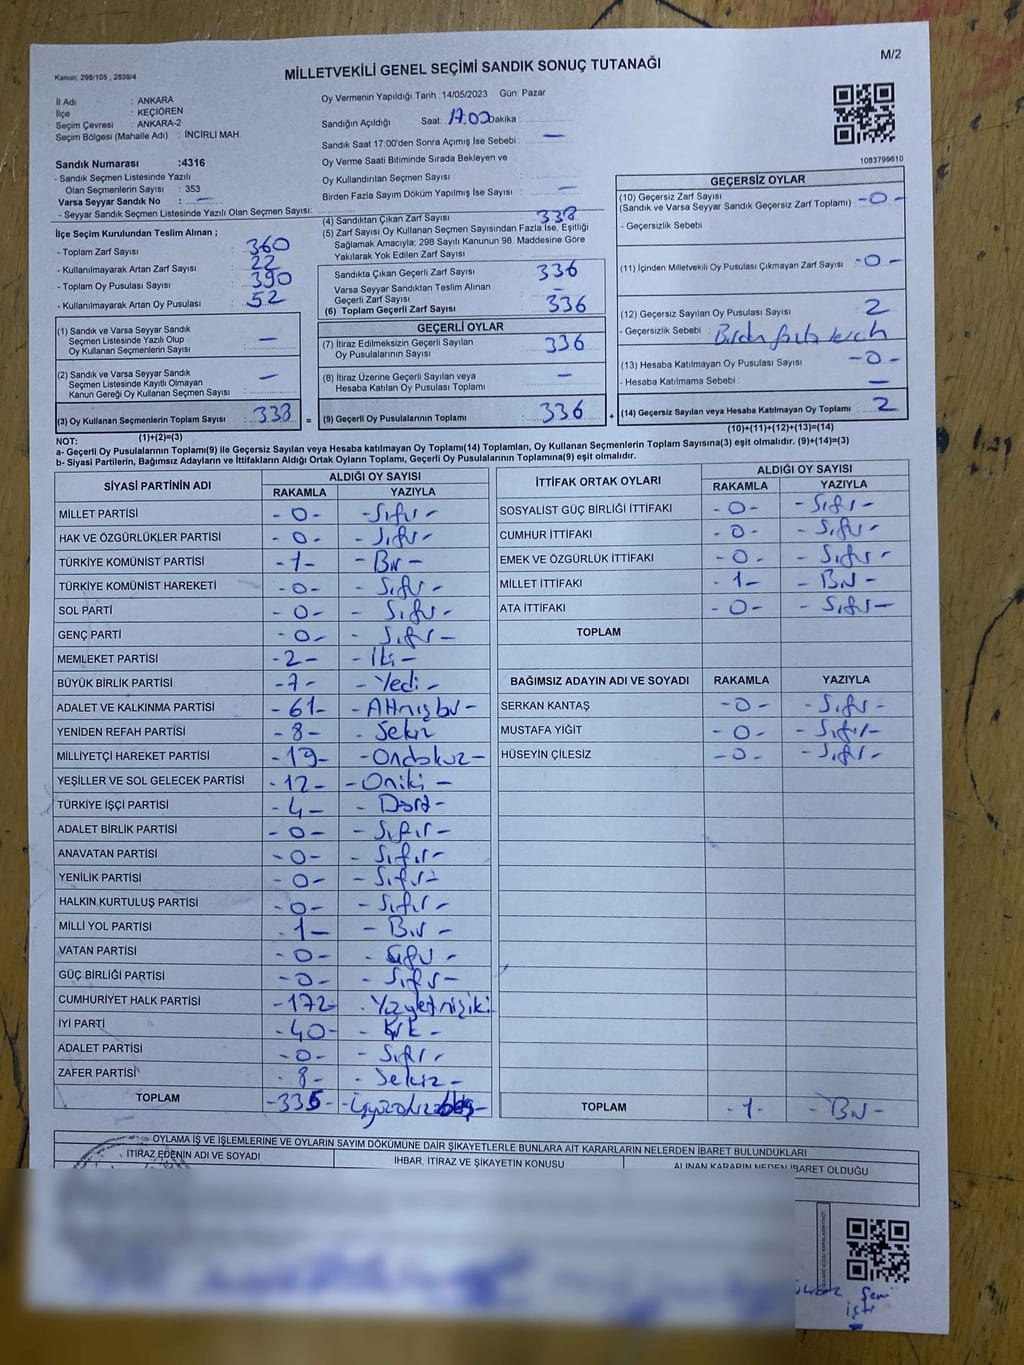 Kanun: 298/105, 2839/4
MİLLETVEKİLİ GENEL SEÇİMİ SANDIK SONUÇ TUTANAĞI
M/2
İl Adı : ANKARA
İlçe : KEÇİÖREN
Seçim Çevresi : ANKARA-2
Seçim Bölgesi (Mahalle Adı) : İNCİRLİ MAH.
Oy Vermenin Yapıldığı Tarih :14/05/2023 Gün: Pazar
Sandığın Açıldığı Saat : 17.00 Dakika :
Sandık Saat 17:00'den Sonra Açımış İse Sebebi : —
Oy Verme Saati Bitiminde Sırada Bekleyen ve
Oy Kullandırılan Seçmen Sayısı :
Birden Fazla Sayım Döküm Yapılmış İse Sayısı : —
1083799610
Sandık Numarası :4316
- Sandık Seçmen Listesinde Yazılı
Olan Seçmenlerin Sayısı : 353
Varsa Seyyar Sandık No : —
- Seyyar Sandık Seçmen Listesinde Yazılı Olan Seçmen Sayısı:
İlçe Seçim Kurulundan Teslim Alınan ;
- Toplam Zarf Sayısı : 360
- Kullanılmayarak Artan Zarf Sayısı : 22
- Toplam Oy Pusulası Sayısı : 390
- Kullanılmayarak Artan Oy Pusulası : 52
(1) Sandık ve Varsa Seyyar Sandık
Seçmen Listesinde Yazılı Olup
Oy Kullanan Seçmenlerin Sayısı : —
(2) Sandık ve Varsa Seyyar Sandık
Seçmen Listesinde Kayıtlı Olmayan
Kanun Gereği Oy Kullanan Seçmen Sayısı : —
(3) Oy Kullanan Seçmenlerin Toplam Sayısı : 338 =
(1)+(2)=(3)
(4) Sandıktan Çıkan Zarf Sayısı : 338
(5) Zarf Sayısı Oy Kullanan Seçmen Sayısından Fazla İse, Eşitliği
Sağlamak Amacıyla; 298 Sayılı Kanunun 98. Maddesine Göre
Yakılarak Yok Edilen Zarf Sayısı :
Sandıkta Çıkan Geçerli Zarf Sayısı : 336
Varsa Seyyar Sandıktan Teslim Alınan
Geçerli Zarf Sayısı : –
(6) Toplam Geçerli Zarf Sayısı : 336
GEÇERLİ OYLAR
(7) İtiraz Edilmeksizin Geçerli Sayılan
Oy Pusulalarının Sayısı : 336
(8) İtiraz Üzerine Geçerli Sayılan veya
Hesaba Katılan Oy Pusulası Toplamı : —
(9) Geçerli Oy Pusulalarının Toplamı : 336 +
GEÇERSİZ OYLAR
(10) Geçersiz Zarf Sayısı
(Sandık ve Varsa Seyyar Sandık Geçersiz Zarf Toplamı) : -0-
- Geçersizlik Sebebi
(11) İçinden Milletvekili Oy Pusulası Çıkmayan Zarf Sayısı : -0-
(12) Geçersiz Sayılan Oy Pusulası Sayısı : 2
- Geçersizlik Sebebi : Birden fazla tercih
(13) Hesaba Katılmayan Oy Pusulası Sayısı : -0-
- Hesaba Katılmama Sebebi : —
(14) Geçersiz Sayılan veya Hesaba Katılmayan Oy Toplamı : 2
(10)+(11)+(12)+(13)=(14)
NOT:
a- Geçerli Oy Pusulalarının Toplamı(9) ile Geçersiz Sayılan veya Hesaba katılmayan Oy Toplamı(14) Toplamları, Oy Kullanan Seçmenlerin Toplam Sayısına(3) eşit olmalıdır. (9)+(14)=(3)
b- Siyasi Partilerin, Bağımsız Adayların ve İttifakların Aldığı Ortak Oyların Toplamı, Geçerli Oy Pusulalarının Toplamına(9) eşit olmalıdır.
SİYASİ PARTİNİN ADI ALDIĞI OY SAYISI
RAKAMLA YAZIYLA
MİLLET PARTİSİ -0- -Sıfır-
HAK VE ÖZGÜRLÜKLER PARTİSİ -0- -Sıfır-
TÜRKİYE KOMÜNİST PARTİSİ -1- -Bir-
TÜRKİYE KOMÜNİST HAREKETİ -0- -Sıfır-
SOL PARTİ -0- -Sıfır-
GENÇ PARTİ -0- -Sıfır-
MEMLEKET PARTİSİ -2- -İki-
BÜYÜK BİRLİK PARTİSİ -7- -Yedi-
ADALET VE KALKINMA PARTİSİ -61- -Altmışbir-
YENİDEN REFAH PARTİSİ -8- -Sekiz
MİLLİYETÇİ HAREKET PARTİSİ -19- -Ondokuz-
YEŞİLLER VE SOL GELECEK PARTİSİ -12- -Oniki-
TÜRKİYE İŞÇİ PARTİSİ -4- -Dört-
ADALET BİRLİK PARTİSİ -0- -Sıfır-
ANAVATAN PARTİSİ -0- -Sıfır-
YENİLİK PARTİSİ -0- -Sıfır-
HALKIN KURTULUŞ PARTİSİ -0- -Sıfır-
MİLLİ YOL PARTİSİ -1- -Bir-
VATAN PARTİSİ -0- -Sıfır-
GÜÇ BİRLİĞİ PARTİSİ -0- -Sıfır-
CUMHURİYET HALK PARTİSİ -172- -Yüzyetmişiki
İYİ PARTİ -40- -Kırk-
ADALET PARTİSİ -0- -Sıfır-
ZAFER PARTİSİ -8- -Sekiz-
TOPLAM -335- -üçyüzotuzbeş-
İTTİFAK ORTAK OYLARI ALDIĞI OY SAYISI
RAKAMLA YAZIYLA
SOSYALİST GÜÇ BİRLİĞİ İTTİFAKI -0- -Sıfır-
CUMHUR İTTİFAKI -0- -Sıfır-
EMEK VE ÖZGÜRLÜK İTTİFAKI -0- -Sıfır-
MİLLET İTTİFAKI -1- -Bir-
ATA İTTİFAKI -0- -Sıfır-
TOPLAM
BAĞIMSIZ ADAYIN ADI VE SOYADI RAKAMLA YAZIYLA
SERKAN KANTAŞ -0- -Sıfır-
MUSTAFA YİĞİT -0- -Sıfır-
HÜSEYİN ÇİLESİZ -0- -Sıfır-
TOPLAM -1- -Bir-
OYLAMA İŞ VE İŞLEMLERİNE VE OYLARIN SAYIM DÖKÜMÜNE DAİR ŞİKAYETLERLE BUNLARA AİT KARARLARIN NELERDEN İBARET BULUNDUKLARI
İTİRAZ EDENİN ADI VE SOYADI İHBAR, İTİRAZ VE ŞİKAYETİN KONUSU ALINAN KARARIN NEDEN İBARET OLDUĞU